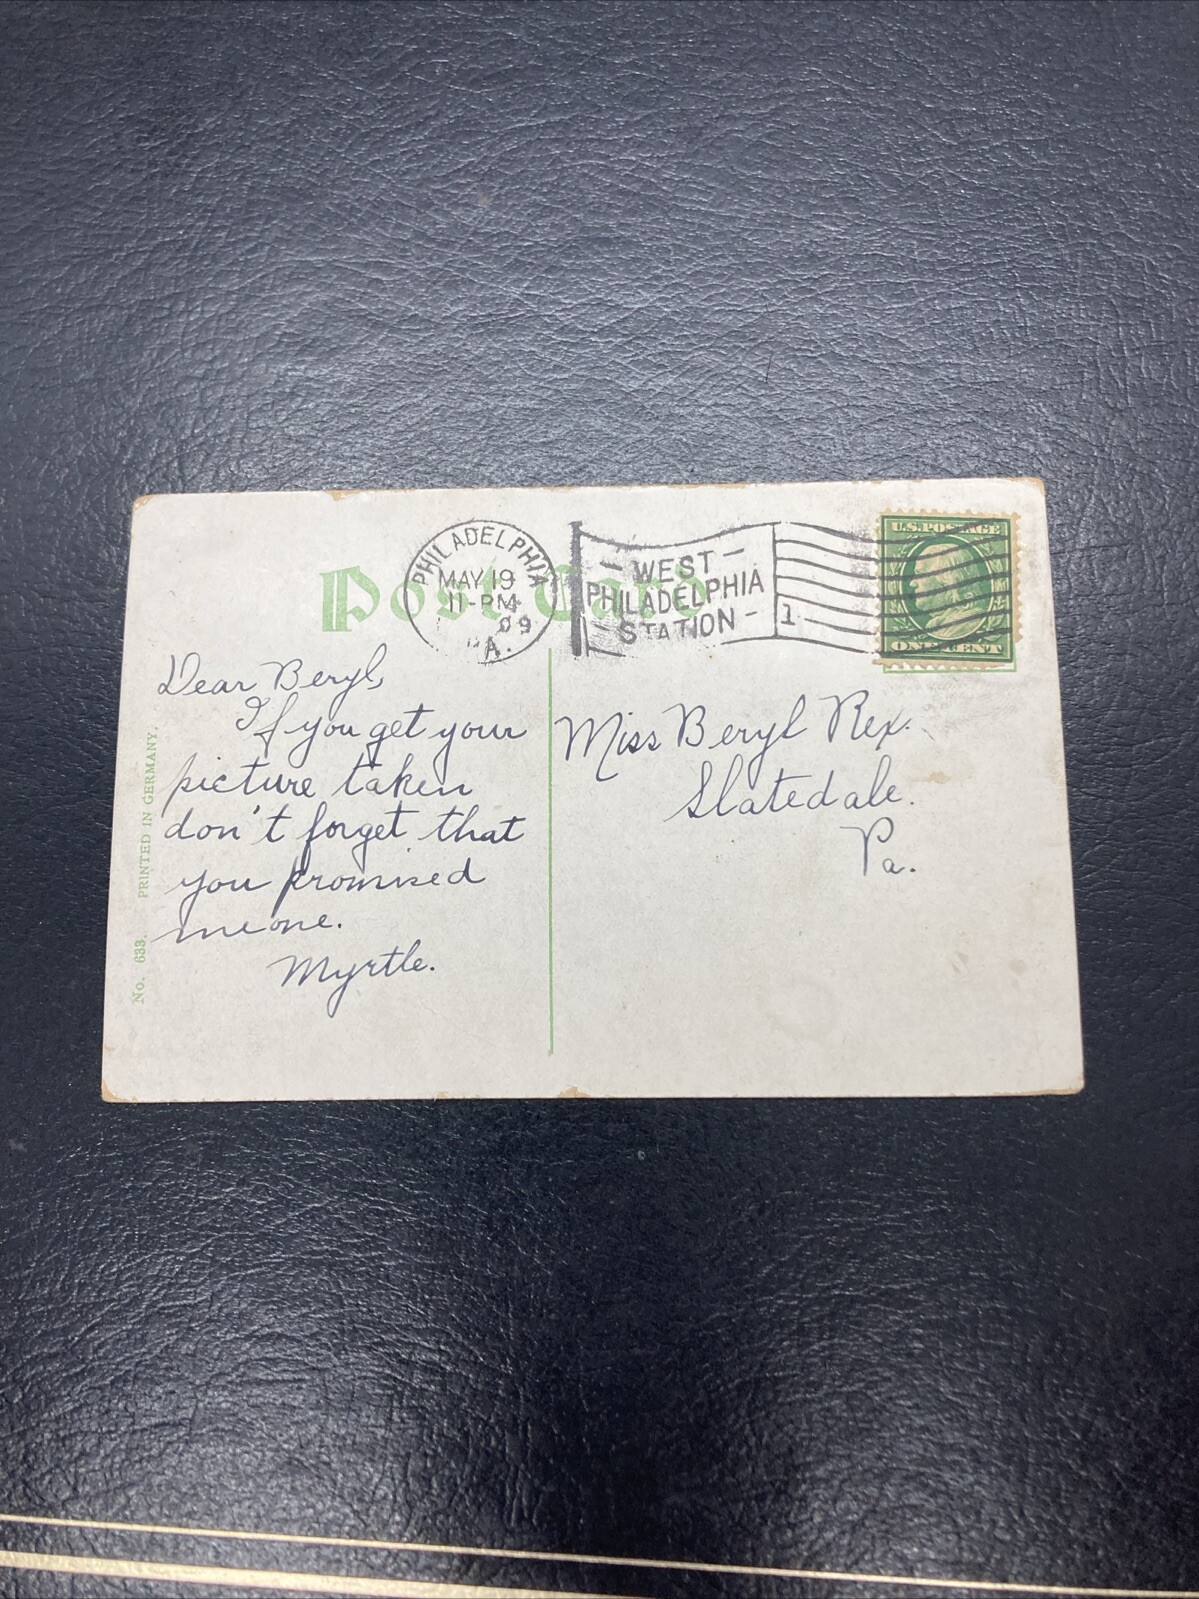 Post Card
PHILADELPHIA
MAY 19
11-PM
09
A.
WEST
PHILADELPHIA
STATION
1
U.S. POSTAGE
ONE CENT
Dear Beryl,
If you get your
picture taken
don't forget that
you promised
me one.
Myrtle.
Miss Beryl Rex.
Slatedale.
Pa.
No. 633. PRINTED IN GERMANY.